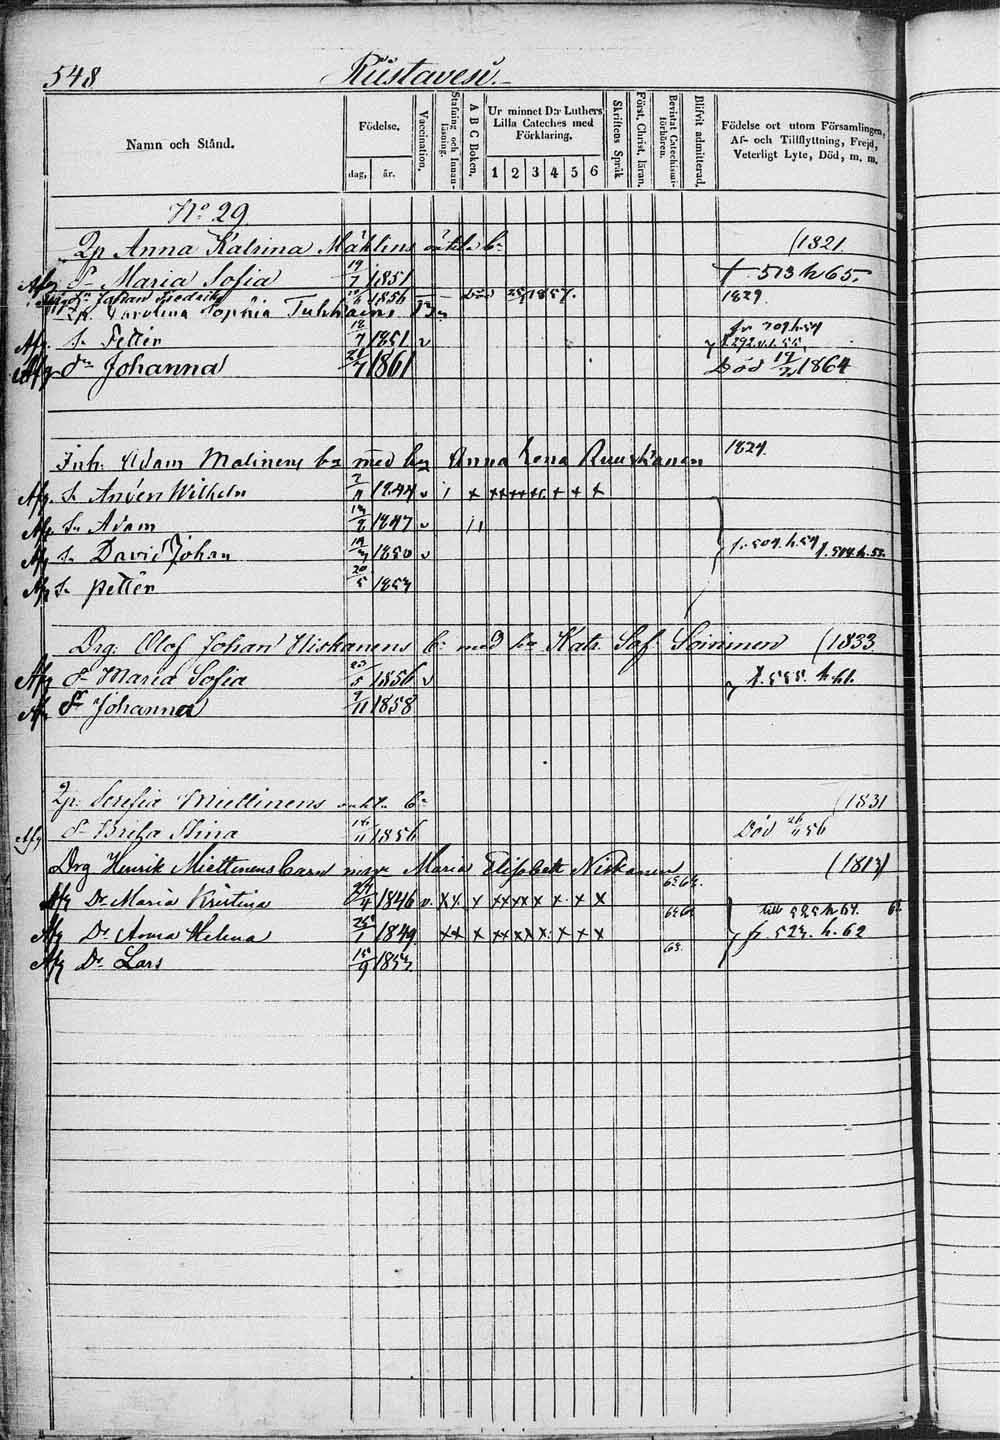 548 Rüstavesi.
Namn och Stånd.
Födelse.
dag, år.
Vaccination.
Stafning och Innan-läsning.
A B C Boken.
Ur minnet D:r Luthers Lilla Cateches med Förklaring.
1 2 3 4 5 6
Skriftens Språk
Först. Christ. läran.
Bevistat Catechismi-förhören.
Blifvit admitterad.
Födelse ort utom Församlingen, Af- och Tillflyttning, Frejd, Veterligt Lyte, Död, m. m.
No 29
Qp Anna Katrina Mähläns oäkta b:n (1821
Afg D:r Maria Sofia 19/7 1851 f. 513 h 65.
Johan Fredrik 1856 död 1857. 1829.
Qp Carolina Sophia Tuhkains B:n
Afg. S:n Petter 18/7 1851 v fr 709 h 54
Afg D:r Johanna 21/7 1861 Död 17/2 1864
Inh. Adam Malinens b:n med hu Anna Lena Ruuskanen 1824.
Afg. S:n Anders Wilhelm 1844 v i x xx xx xx x x x
Afg. S:n Adam 1847 v i,
Afg S:n David Johan 19/3 1850 v fr. 504. h. 54 f. 504. h. 55.
Afg S:n Petter 20/5 1853
Drg. Olof Johan Hiskanens b:n med hu Katr. Sof. Soininen (1833
Afg D:r Maria Sofia 1856 v f. 555. h. 61.
Afg D:r Johanna 9/11 1858
Qp. Serefia Miettinens oäkta b:n (1831
Afg D:r Brita Stina 16/11 1856 Död 26/11 56
Drg Henrik Miettinens barn med Maria Elisabett Niskanen (1813)
Afg D:r Maria Kristina 1846 v. xx x xx xx x x x x 62 64. till 525 h 64.
Afg D:r Anna Helena 1849 xx x xx xx x x x x 62 64 fr. 523. h. 62
Afg D:r Lars 15/9 1853 63.